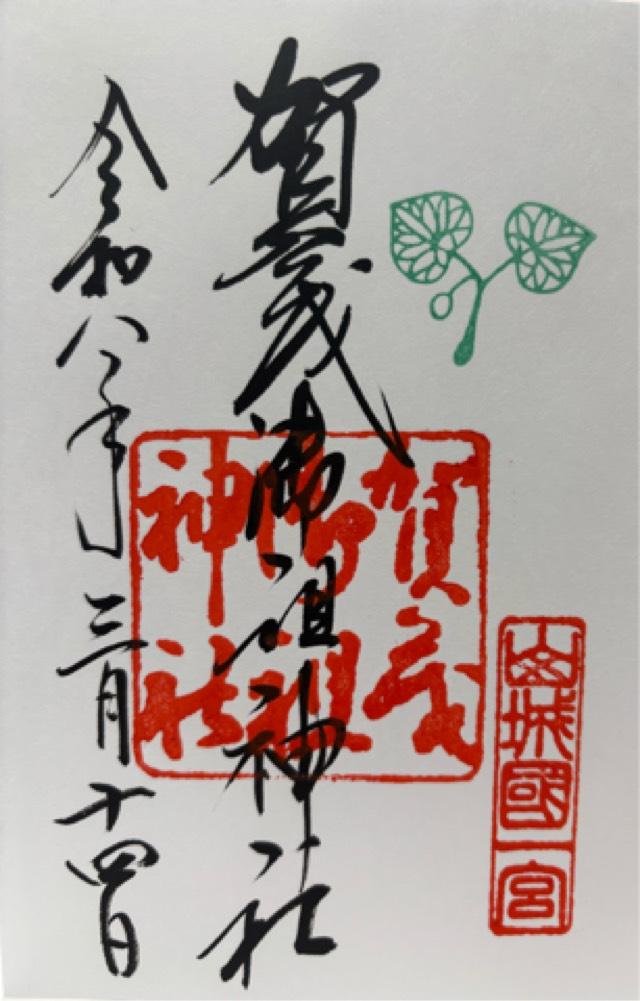 賀茂御祖神社
令和八年三月十四日
賀茂
御祖
神社
山城國一宮